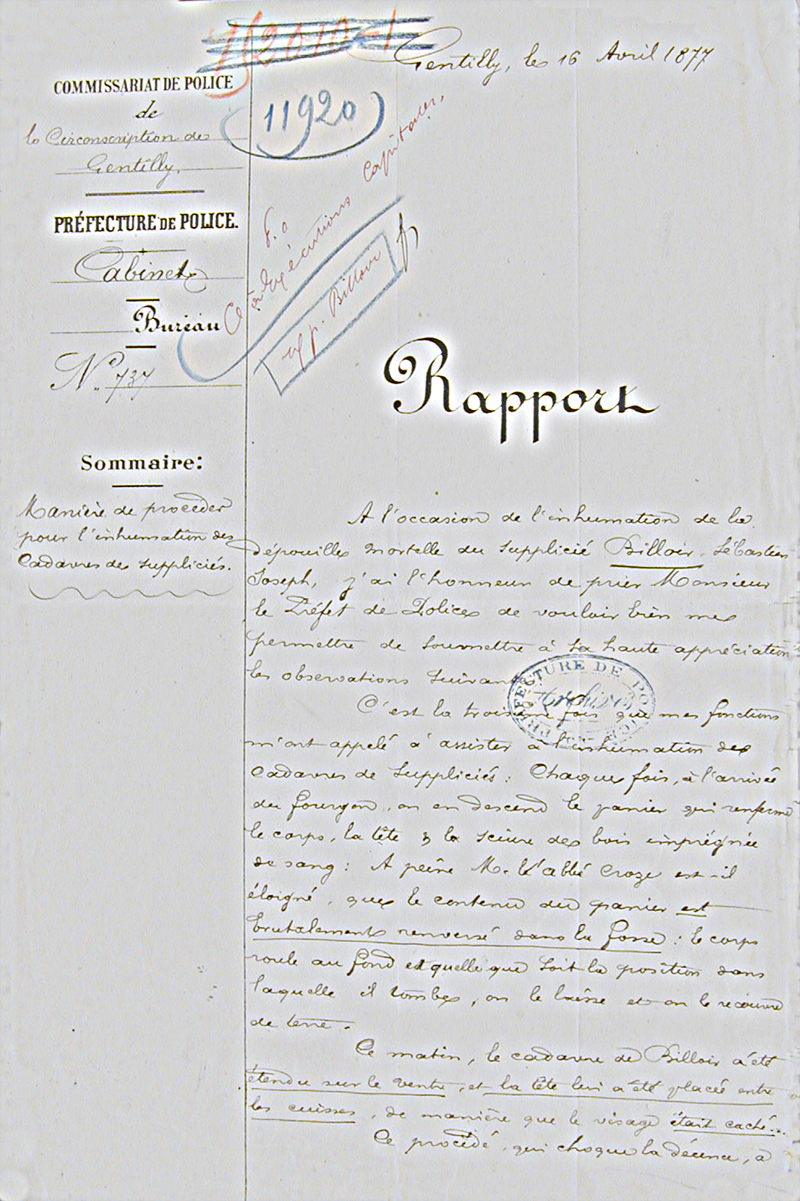 Gentilly, le 16 Avril 1877
COMMISSARIAT DE POLICE
de
la Circonscription de
Gentilly.
11920
PRÉFECTURE DE POLICE.
Cabinet
Bureau
N° 737
à Exécutions Capitales,
aff. Billoir
Rapport
Sommaire:
Manière de procéder
pour l'inhumation des
Cadavres des suppliciés.
A l'occasion de l'inhumation de la
dépouille mortelle du supplicié Billoir, Sébastien
Joseph, j'ai l'honneur de prier Monsieur
le Préfet de Police de vouloir bien me
permettre de soumettre à sa haute appréciation
les observations suivan
PRÉFECTURE DE POLICE
Archives
C'est la troisième fois que mes fonctions
m'ont appelé à assister à l'inhumation des
Cadavres de Suppliciés : Chaque fois, à l'arrivée
du fourgon, on en descend le panier qui renferme
le corps, la tête & la sciure de bois imprégnée
de sang : A peine M. l'abbé Croze est-il
éloigné, que le contenu du panier est
brutalement renversé dans la fosse : le corps
roule au fond et quelle que soit la position dans
laquelle il tombe, on le laisse et on le recouvre
de terre.
Ce matin, le cadavre de Billoir a été
étendu sur le ventre, et la tête lui a été placée entre
les cuisses, de manière que le visage était caché..
Ce procédé, qui choque la décence, a